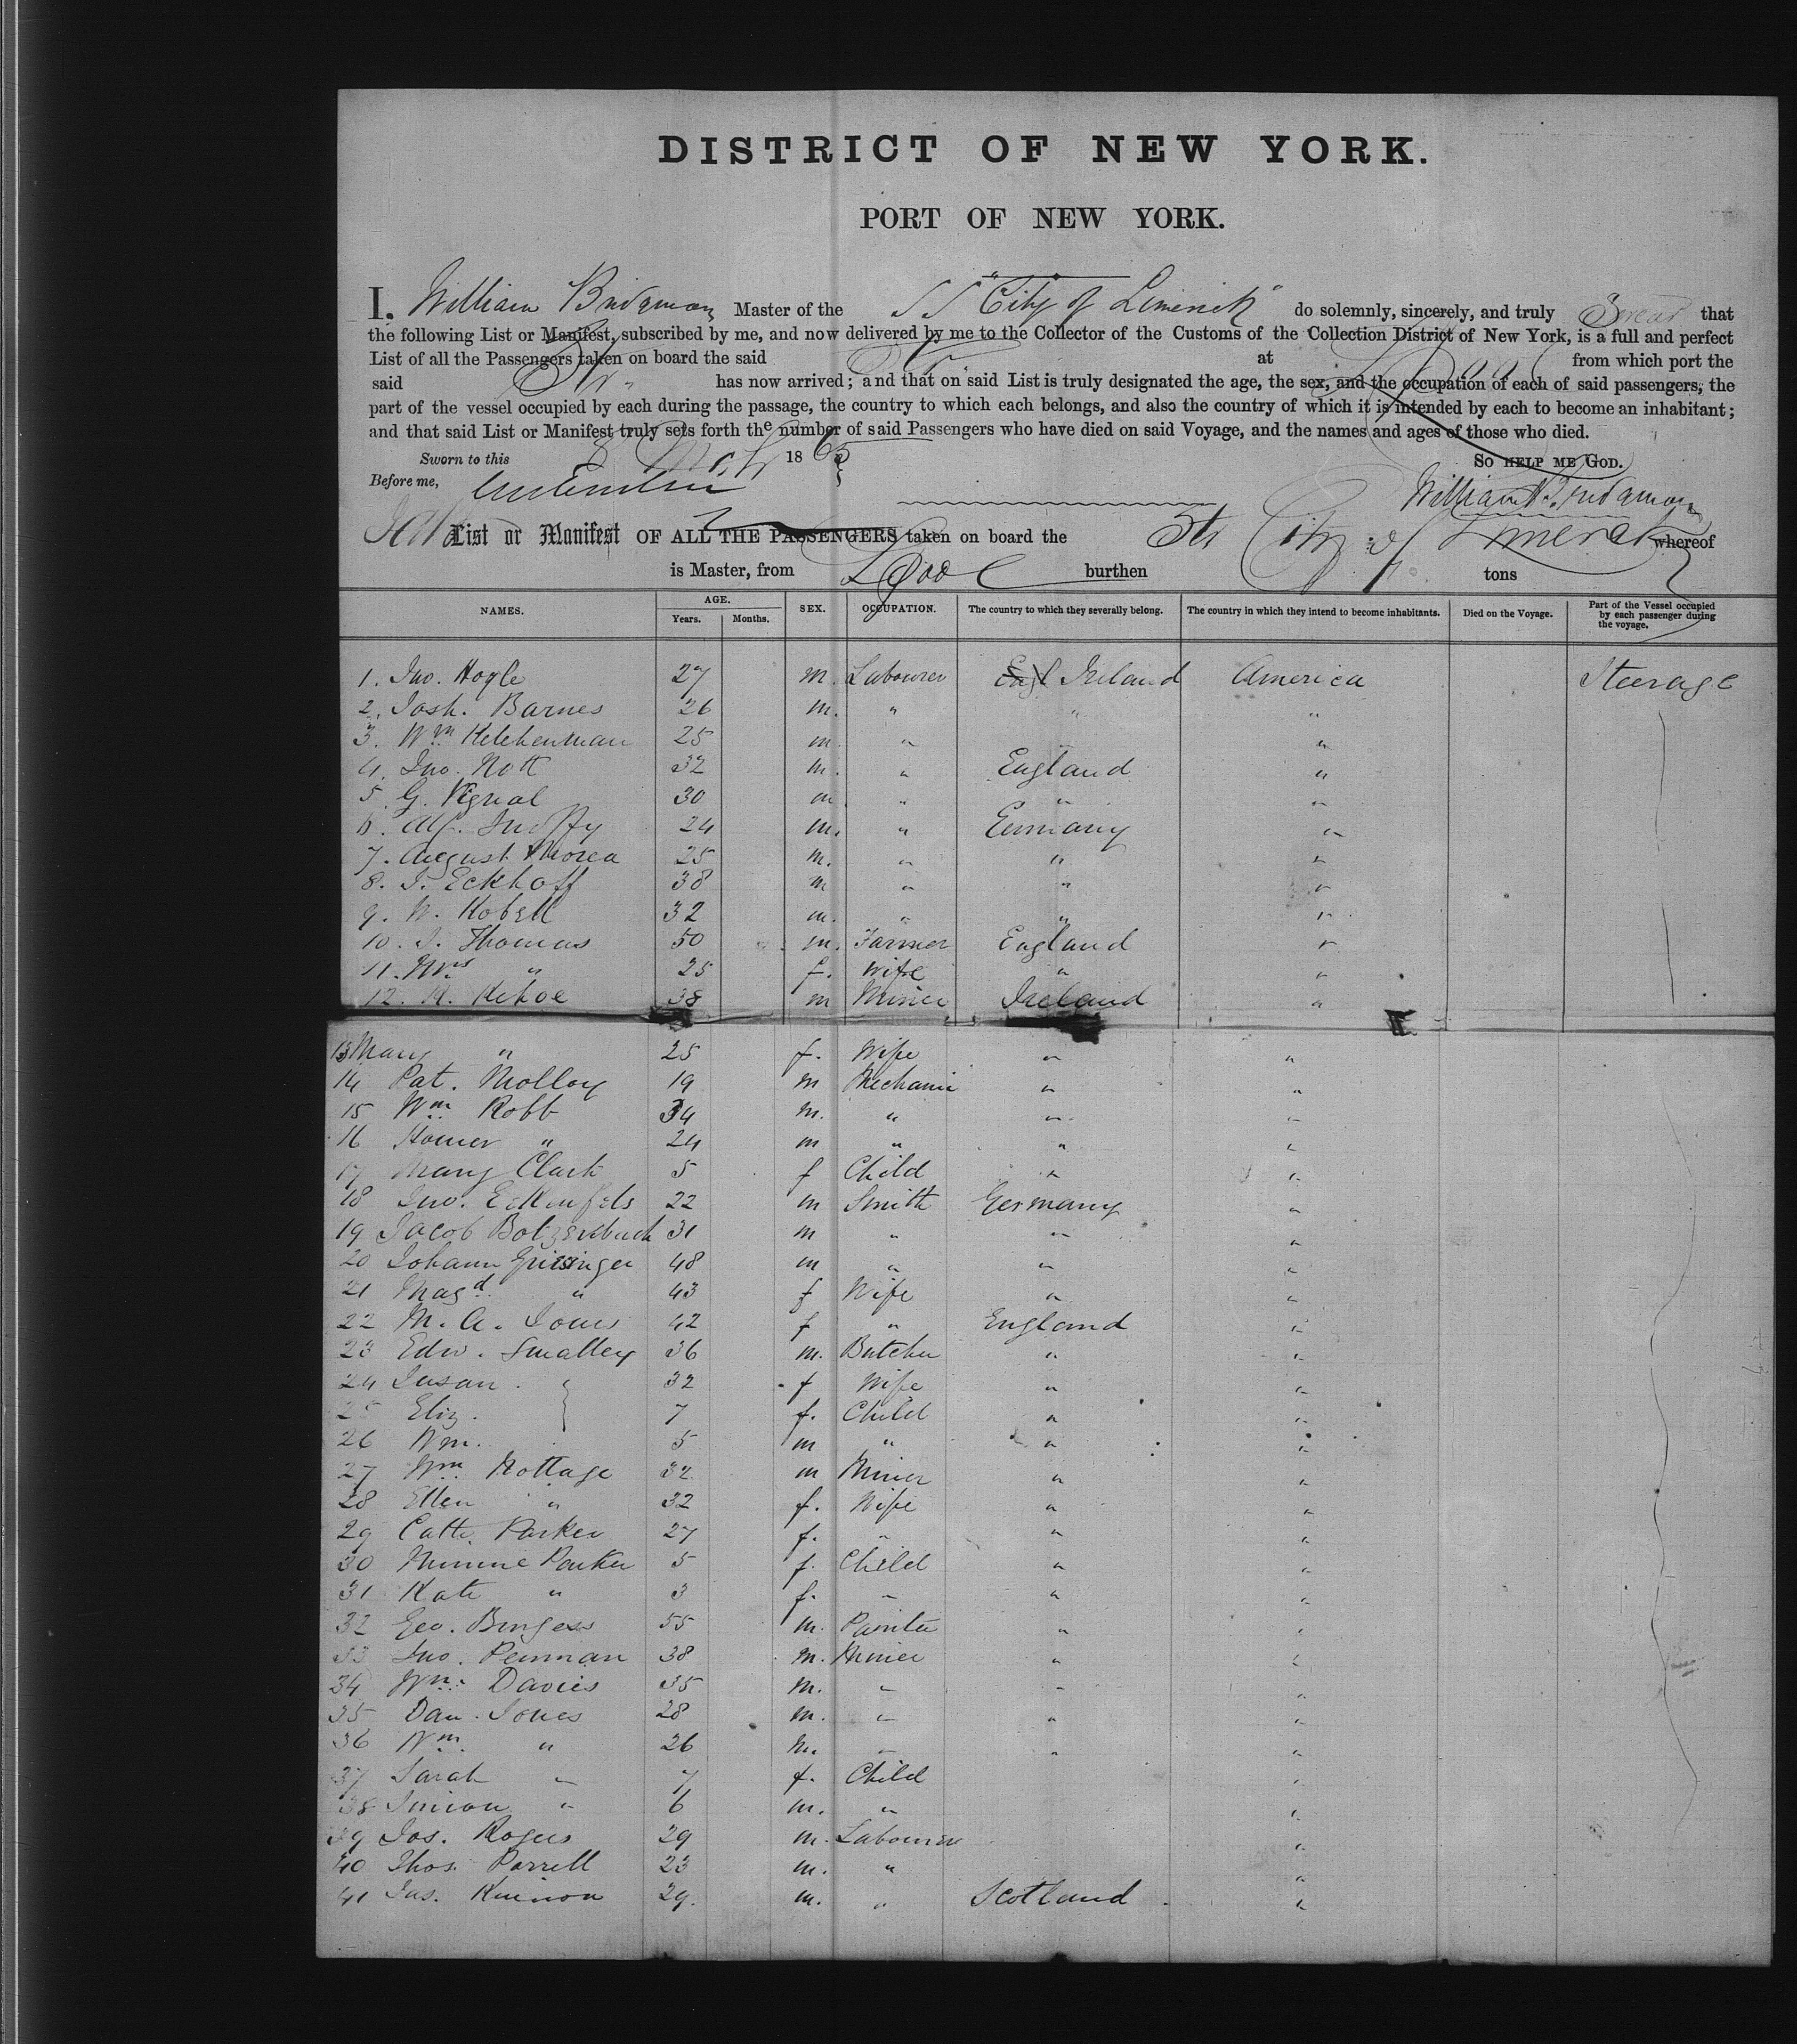 DISTRICT OF NEW YORK.
PORT OF NEW YORK.
I, William Bridgman Master of the SS "City of Limerick" do solemnly, sincerely, and truly Swear that
the following List or Manifest, subscribed by me, and now delivered by me to the Collector of the Customs of the Collection District of New York, is a full and perfect
List of all the Passengers taken on board the said Str at LPool from which port the
said Str has now arrived; and that on said List is truly designated the age, the sex, and the occupation of each of said passengers, the
part of the vessel occupied by each during the passage, the country to which each belongs, and also the country of which it is intended by each to become an inhabitant;
and that said List or Manifest truly sets forth the number of said Passengers who have died on said Voyage, and the names and ages of those who died.
Sworn to this 8 Mch 1865 SO HELP ME GOD.
Before me, William Bridgman
List or Manifest OF ALL THE PASSENGERS taken on board the Str City of Limerick whereof
is Master, from LPool burthen tons
NAMES. AGE. SEX. OCCUPATION. The country to which they severally belong. The country in which they intend to become inhabitants. Died on the Voyage. Part of the Vessel occupied by each passenger during the voyage.
Years. Months.
1. Jno. Hogle 27 m. Labourer Engl Ireland America Steerage
2. Josh. Barnes 26 m. " " "
3. Wm Kelehenman 25 m. " "
4. Jno. Nott 32 m. " England "
5. G. 30 m " " "
6. Alf. 24 m. " Germany "
7. August 25 m. " " "
8. J. Eckhoff 38 m " " "
9. W. Kobell 32 m. " " "
10. J. Thomas 50 m. Farmer England "
11. Mrs " 25 f. Wife " "
12. K. Kehoe 38 m Miner Ireland "
13 Mary " 25 f. Wife " "
14 Pat. Molloy 19 m Mechanic " "
15 Wm Robb 34 m. " " "
16 Homer " 24 m " " "
17 Mary Clark 5 f Child " "
18 Jno. Eckenfels 22 m Smith Germany "
19 Jacob Botzenbuch 31 m " " "
20 Johann Grisinger 48 m " " "
21 Magd " 43 f Wife " "
22 M. A. Jones 42 f " England "
23 Edw. Smalley 36 m. Butcher " "
24 Susan. 32 f Wife " "
25 Eliz. 7 f. Child " "
26 Wm. 5 m " " "
27 Wm Hottage 32 m Miner " "
28 Ellen " 32 f. Wife " "
29 Cath. Parker 27 f. " " "
30 Minnie Parker 5 f. Child " "
31 Kate " 3 f. " " "
32 Geo. Burgess 55 m. Painter " "
33 Jno. Penman 38 m. Miner " "
34 Wm. Davies 35 m. " " "
35 Dan. Jones 28 m. " " "
36 Wm. " 26 m. " " "
37 Sarah " 7 f. Child "
38 Simion " 6 m. " "
39 Jos. Rogers 29 m. Labourer "
40 Thos. Parrell 23 m. " "
41 Jas. Kinnon 29. m. " Scotland "